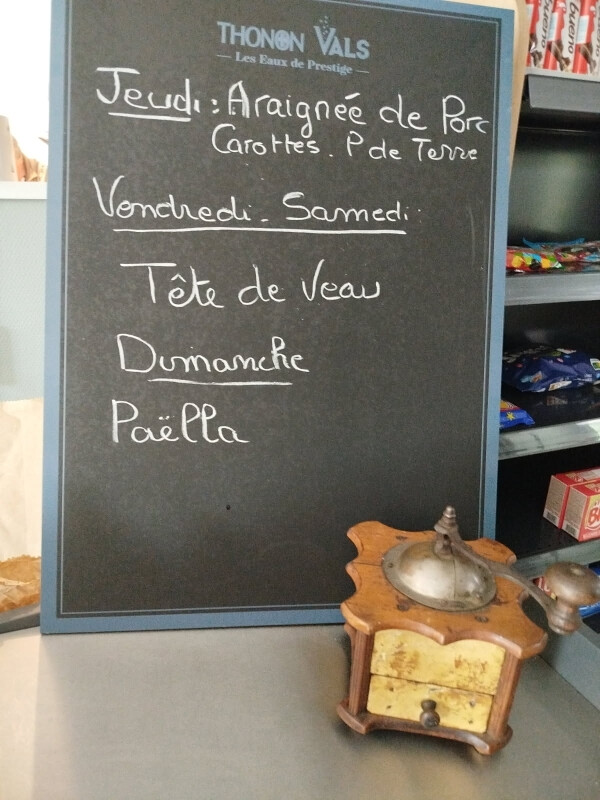 THONON VALS
Les Eaux de Prestige
Jeudi : Araignée de Porc
Carottes. P de Terre
Vendredi - Samedi:
Tête de Veau
Dimanche
Paëlla
bueno